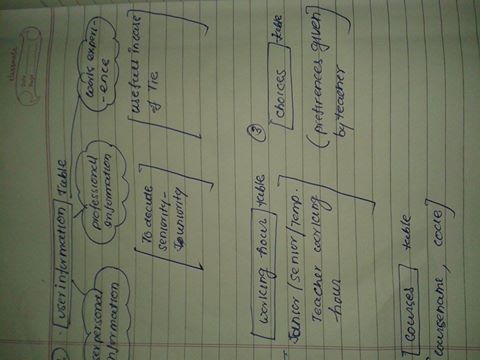 user information table
userpersonal
information
professional
information
work experi-
ence
To decide
seniority-
Juniority
usefull incase
of Tie
working hour table
Junior/senior/temp.
Teacher working
hour
③
choices table
(prefirences given
by teacher)
courses table
coursename, code